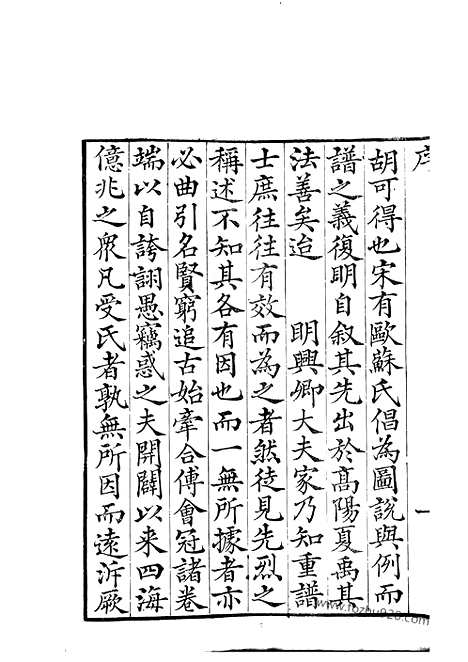 胡可得也宋有歐蘇氏倡為圖說與例而
譜之義復明自叙其先出於髙陽夏禹其
法善矣迨　　明興卿大夫家乃知重譜
士庶往往有效而為之者然徒見先烈之
稱述不知其各有因也而一無所據者亦
必曲引名賢窮追古始牽合傅會冠諸卷
端以自誇詡愚竊惑之夫開闢以来四海
億兆之衆凡受氏者孰無所因而遠泝厥